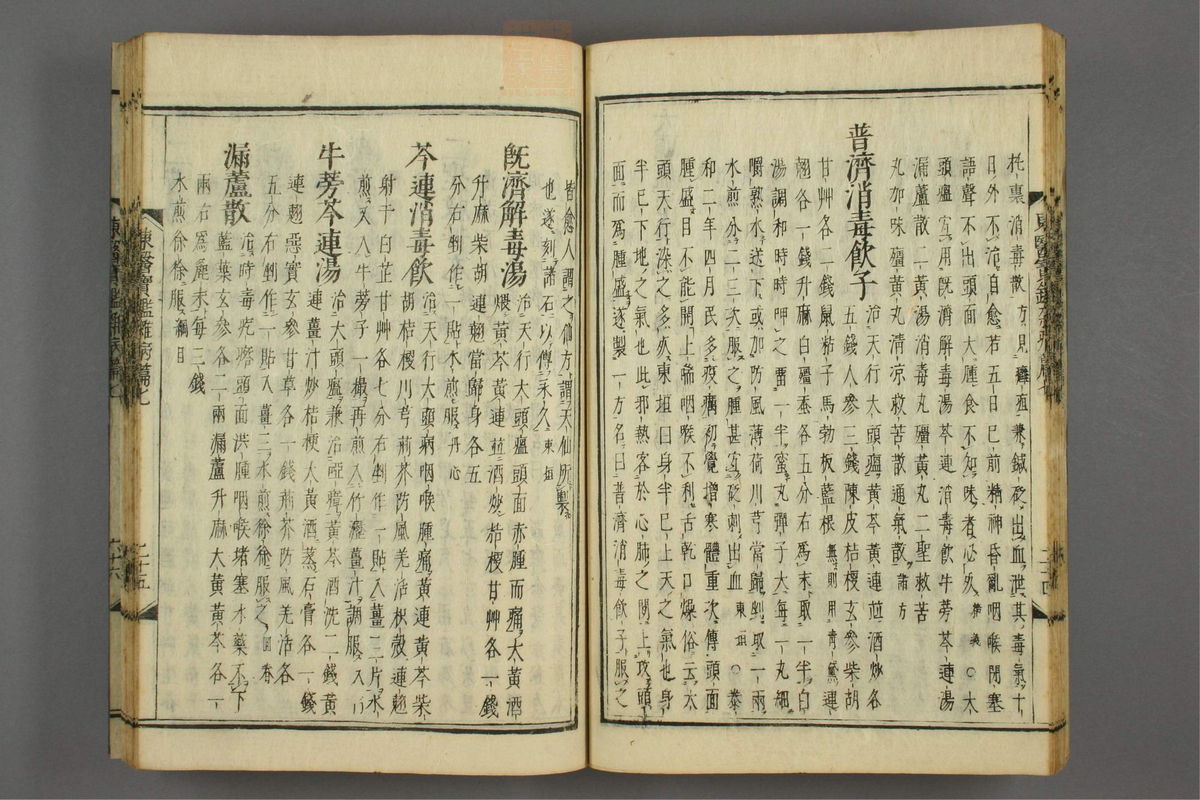 托裏消毒散方見癰疽兼鍼砭出血泄其毒氣十
日外不治自愈若五日已前精神昏亂咽喉閉塞
語聲不出頭面大腫食不知味者必死 ○大
頭瘟宜用旣濟解毒湯芩連消毒飮牛蒡芩連湯
漏蘆散人黃湯消毒丸殭黃丸二聖救苦
丸加味殭黃丸淸凉救苦散通氣散諸方
普濟消毒飮子治天行大頭瘟黃芩黃連並酒炒各
五錢人參三錢陳皮桔梗玄參柴胡
甘艸各二錢鼠粘子馬勃板藍根無則用靑黛連
翹各一錢升麻白殭蚕各五分右爲末取一半白
湯調和時時呷之留一半蜜丸彈子大每一丸細
嚼熟水送下或加防風薄荷川芎當歸剉取一兩
水煎分二三次服之腫甚宜砭刺出血東垣○泰
和二年四月民多疫癘初覺增寒體重次傳頭面
腫盛目不能開上喘咽喉不利舌乾口燥俗云大
頭天行染之多死東垣曰身半已上天之氣也身
半已下地之氣也此邪熱客於心肺之間上攻頭
面而爲腫盛遂製一方名曰普濟消毒飮子服之
皆愈人謂之仙方謂天仙所製
也遂刻諸石以傳永久東垣
旣濟解毒湯治天行大頭瘟頭面赤腫而痛大黃酒
煨黃芩黃連並酒炒桔梗甘艸各一錢
升麻柴胡連翹當歸身各五
分右剉作一貼水煎服丹心
芩連消毒飮治天行大頭病咽喉腫痛黃連黃芩柴
胡桔梗川芎荊芥防風羌活枳殼連翹
射干白芷甘艸各七分右剉作一貼入薑三片水
煎入入牛蒡子一撮再煎入竹瀝薑汁調服入
牛蒡芩連湯治大頭瘟兼治啞瘴黃芩酒洗二錢黃
連薑汁炒桔梗大黃酒蒸石膏各一錢
連翹惡實玄參甘草各一錢荊芥防風羌活各
五分右剉作一貼入薑三水煎徐徐服之回春
漏蘆散治時毒疙瘩頭面洪腫咽喉堵塞水藥不下
藍葉玄參各二兩漏蘆升麻大黃黃芩各一
兩右爲麤末每三錢
水煎徐徐服綱目
東醫寶鑑雜病篇七
二十五